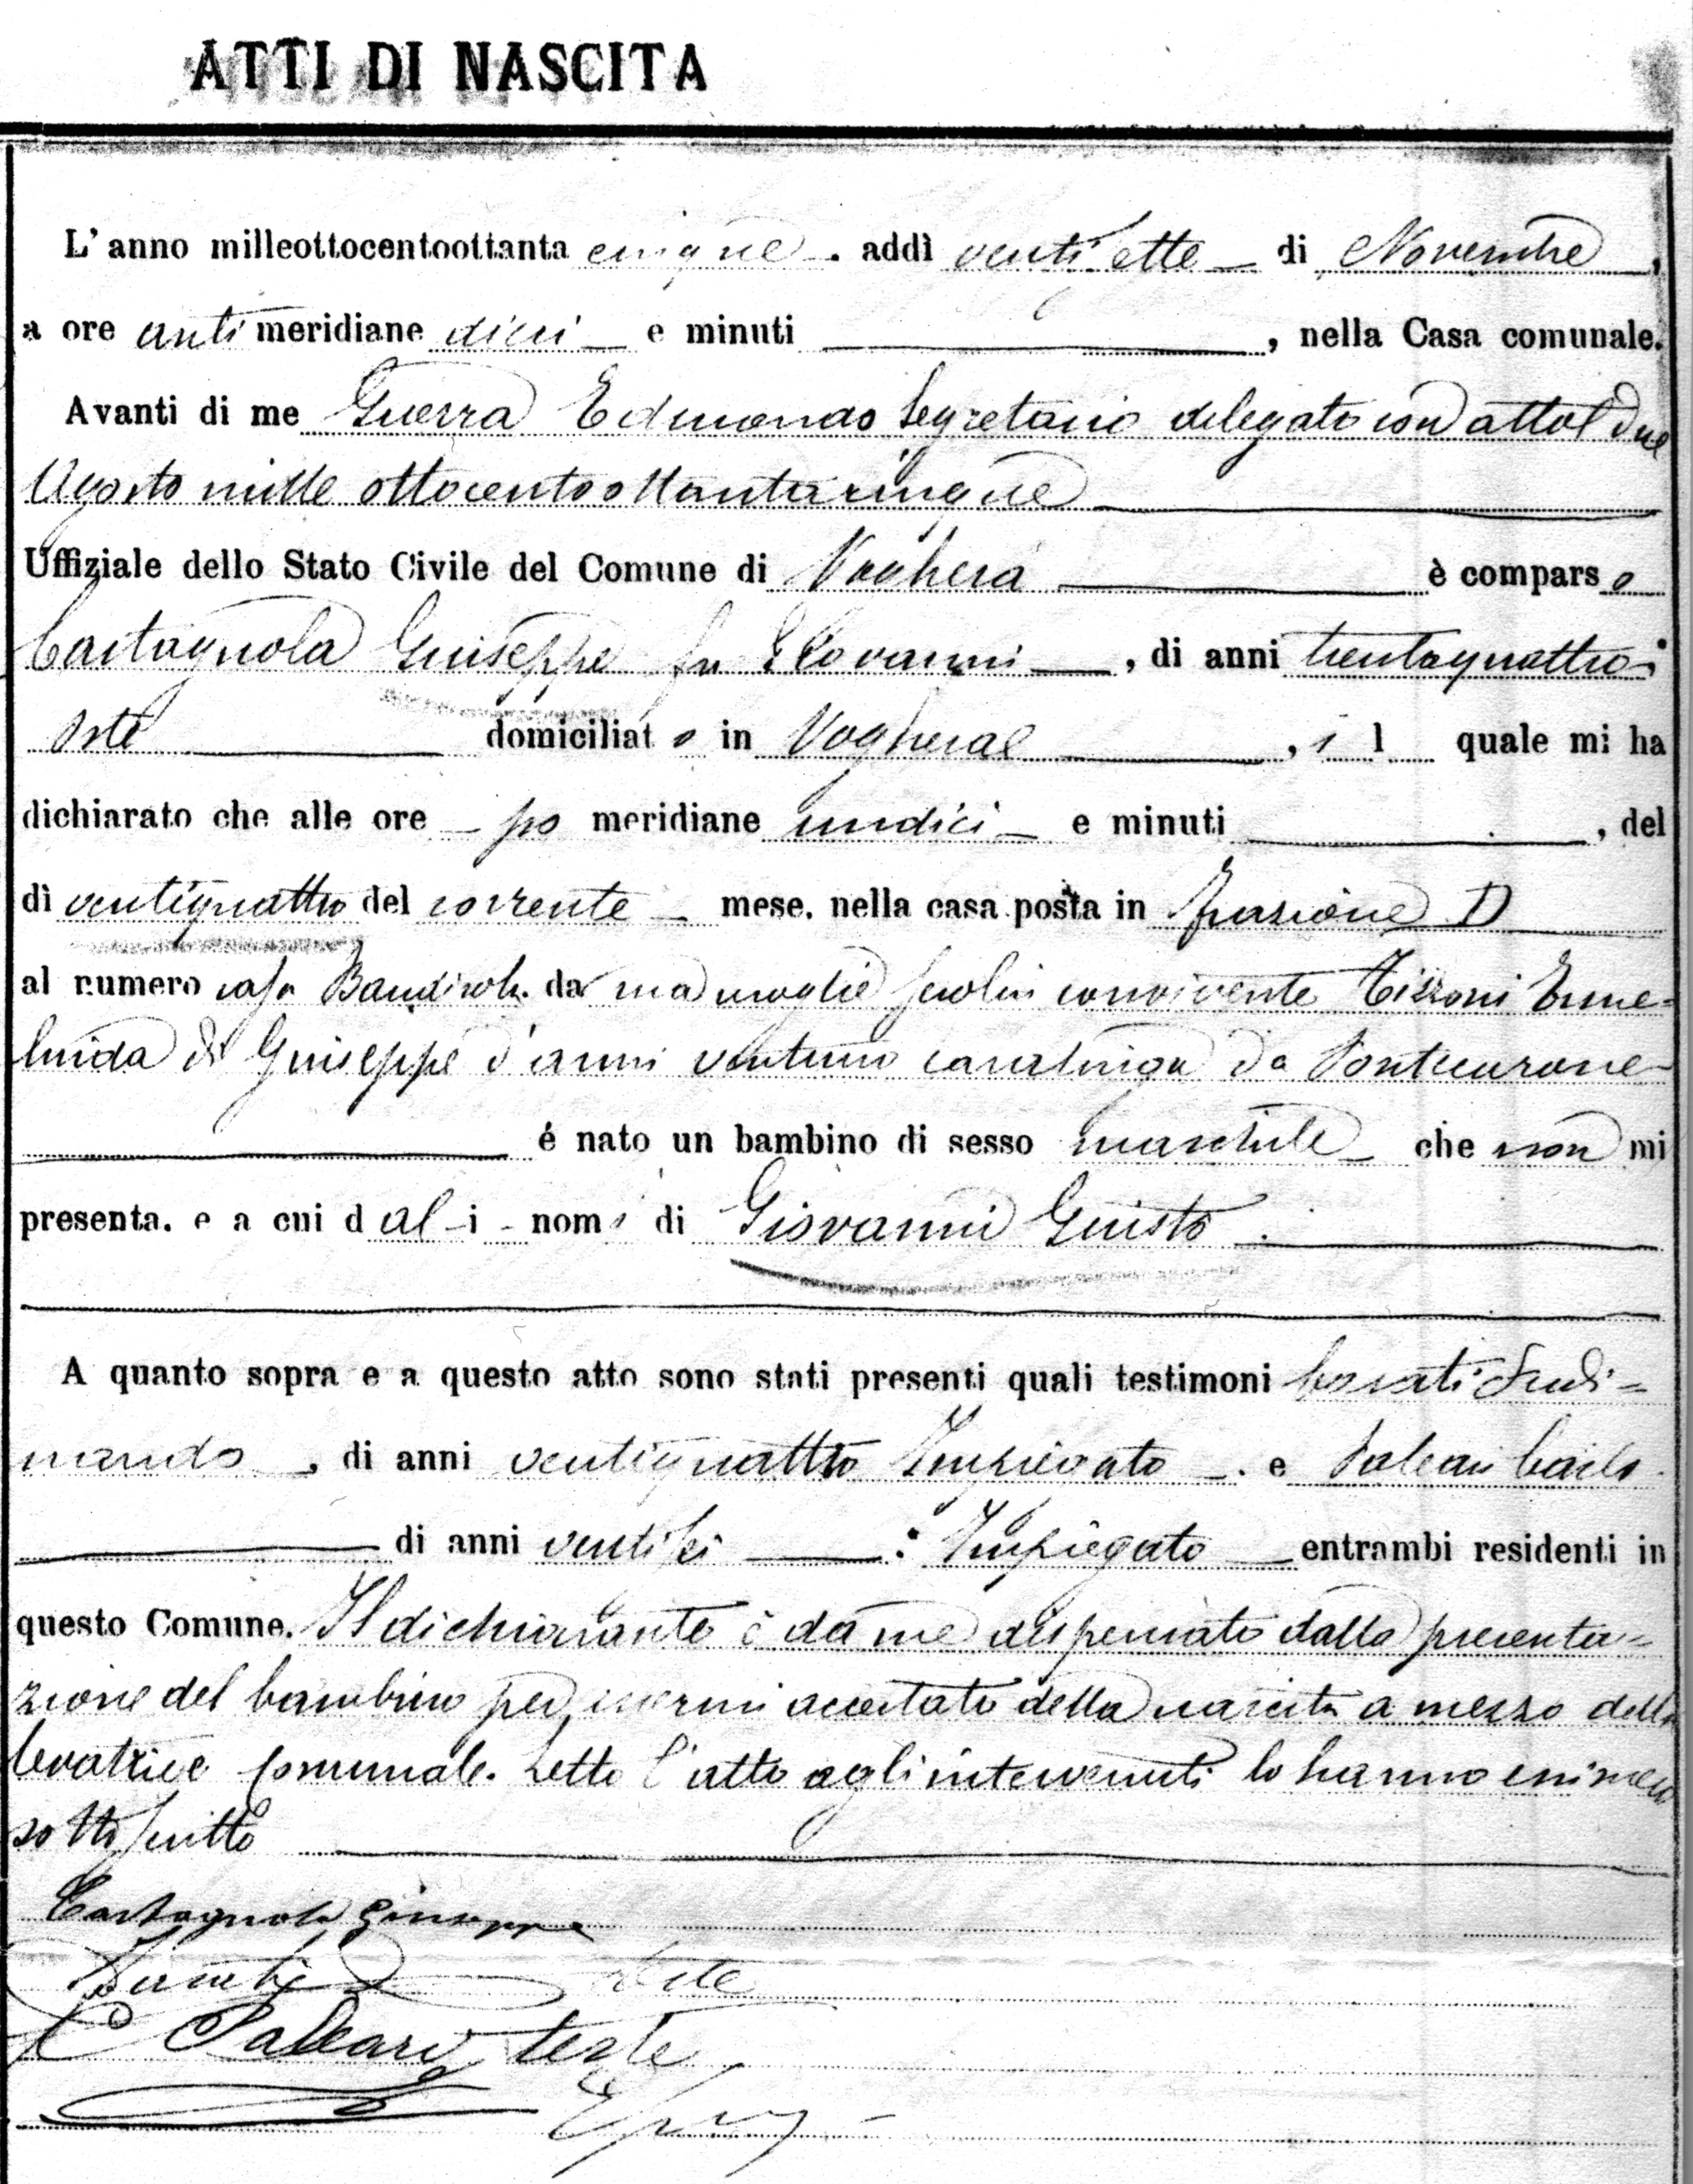 ATTI DI NASCITA
L'anno milleottocentoottanta cinque. addì ventisette di Novembre,
a ore anti meridiane dieci e minuti , nella Casa comunale.
Avanti di me Guerra Edmondo Segretario delegato con atto due
Agosto mille ottocentoottantacinque
Uffiziale dello Stato Civile del Comune di Voghera è comparso
Castagnola Giuseppe fu Giovanni, di anni trentaquattro
oste domiciliato in Voghera, il quale mi ha
dichiarato che alle ore po meridiane undici e minuti , del
dì ventiquattro del corrente mese, nella casa posta in frazione D
al numero casa da sua moglie seco lui convivente Tizzoni Erme=
linda di Giuseppe d'anni ventuno casalinga da Pontecurone
é nato un bambino di sesso maschile che non mi
presenta, e a cui dà i nomi di Giovanni Giusto.
A quanto sopra e a questo atto sono stati presenti quali testimoni Ferdi=
nando, di anni ventiquattro Impiegato. e Paleari Carlo
di anni ventisei : Impiegato entrambi residenti in
questo Comune. Il dichiarante è da me dispensato dalla presenta=
zione del bambino per essermi accertato della nascita a mezzo della
levatrice Comunale. Letto l'atto agli intervenuti lo hanno
sottoscritto
Castagnola Giuseppe
teste
C Paleari teste